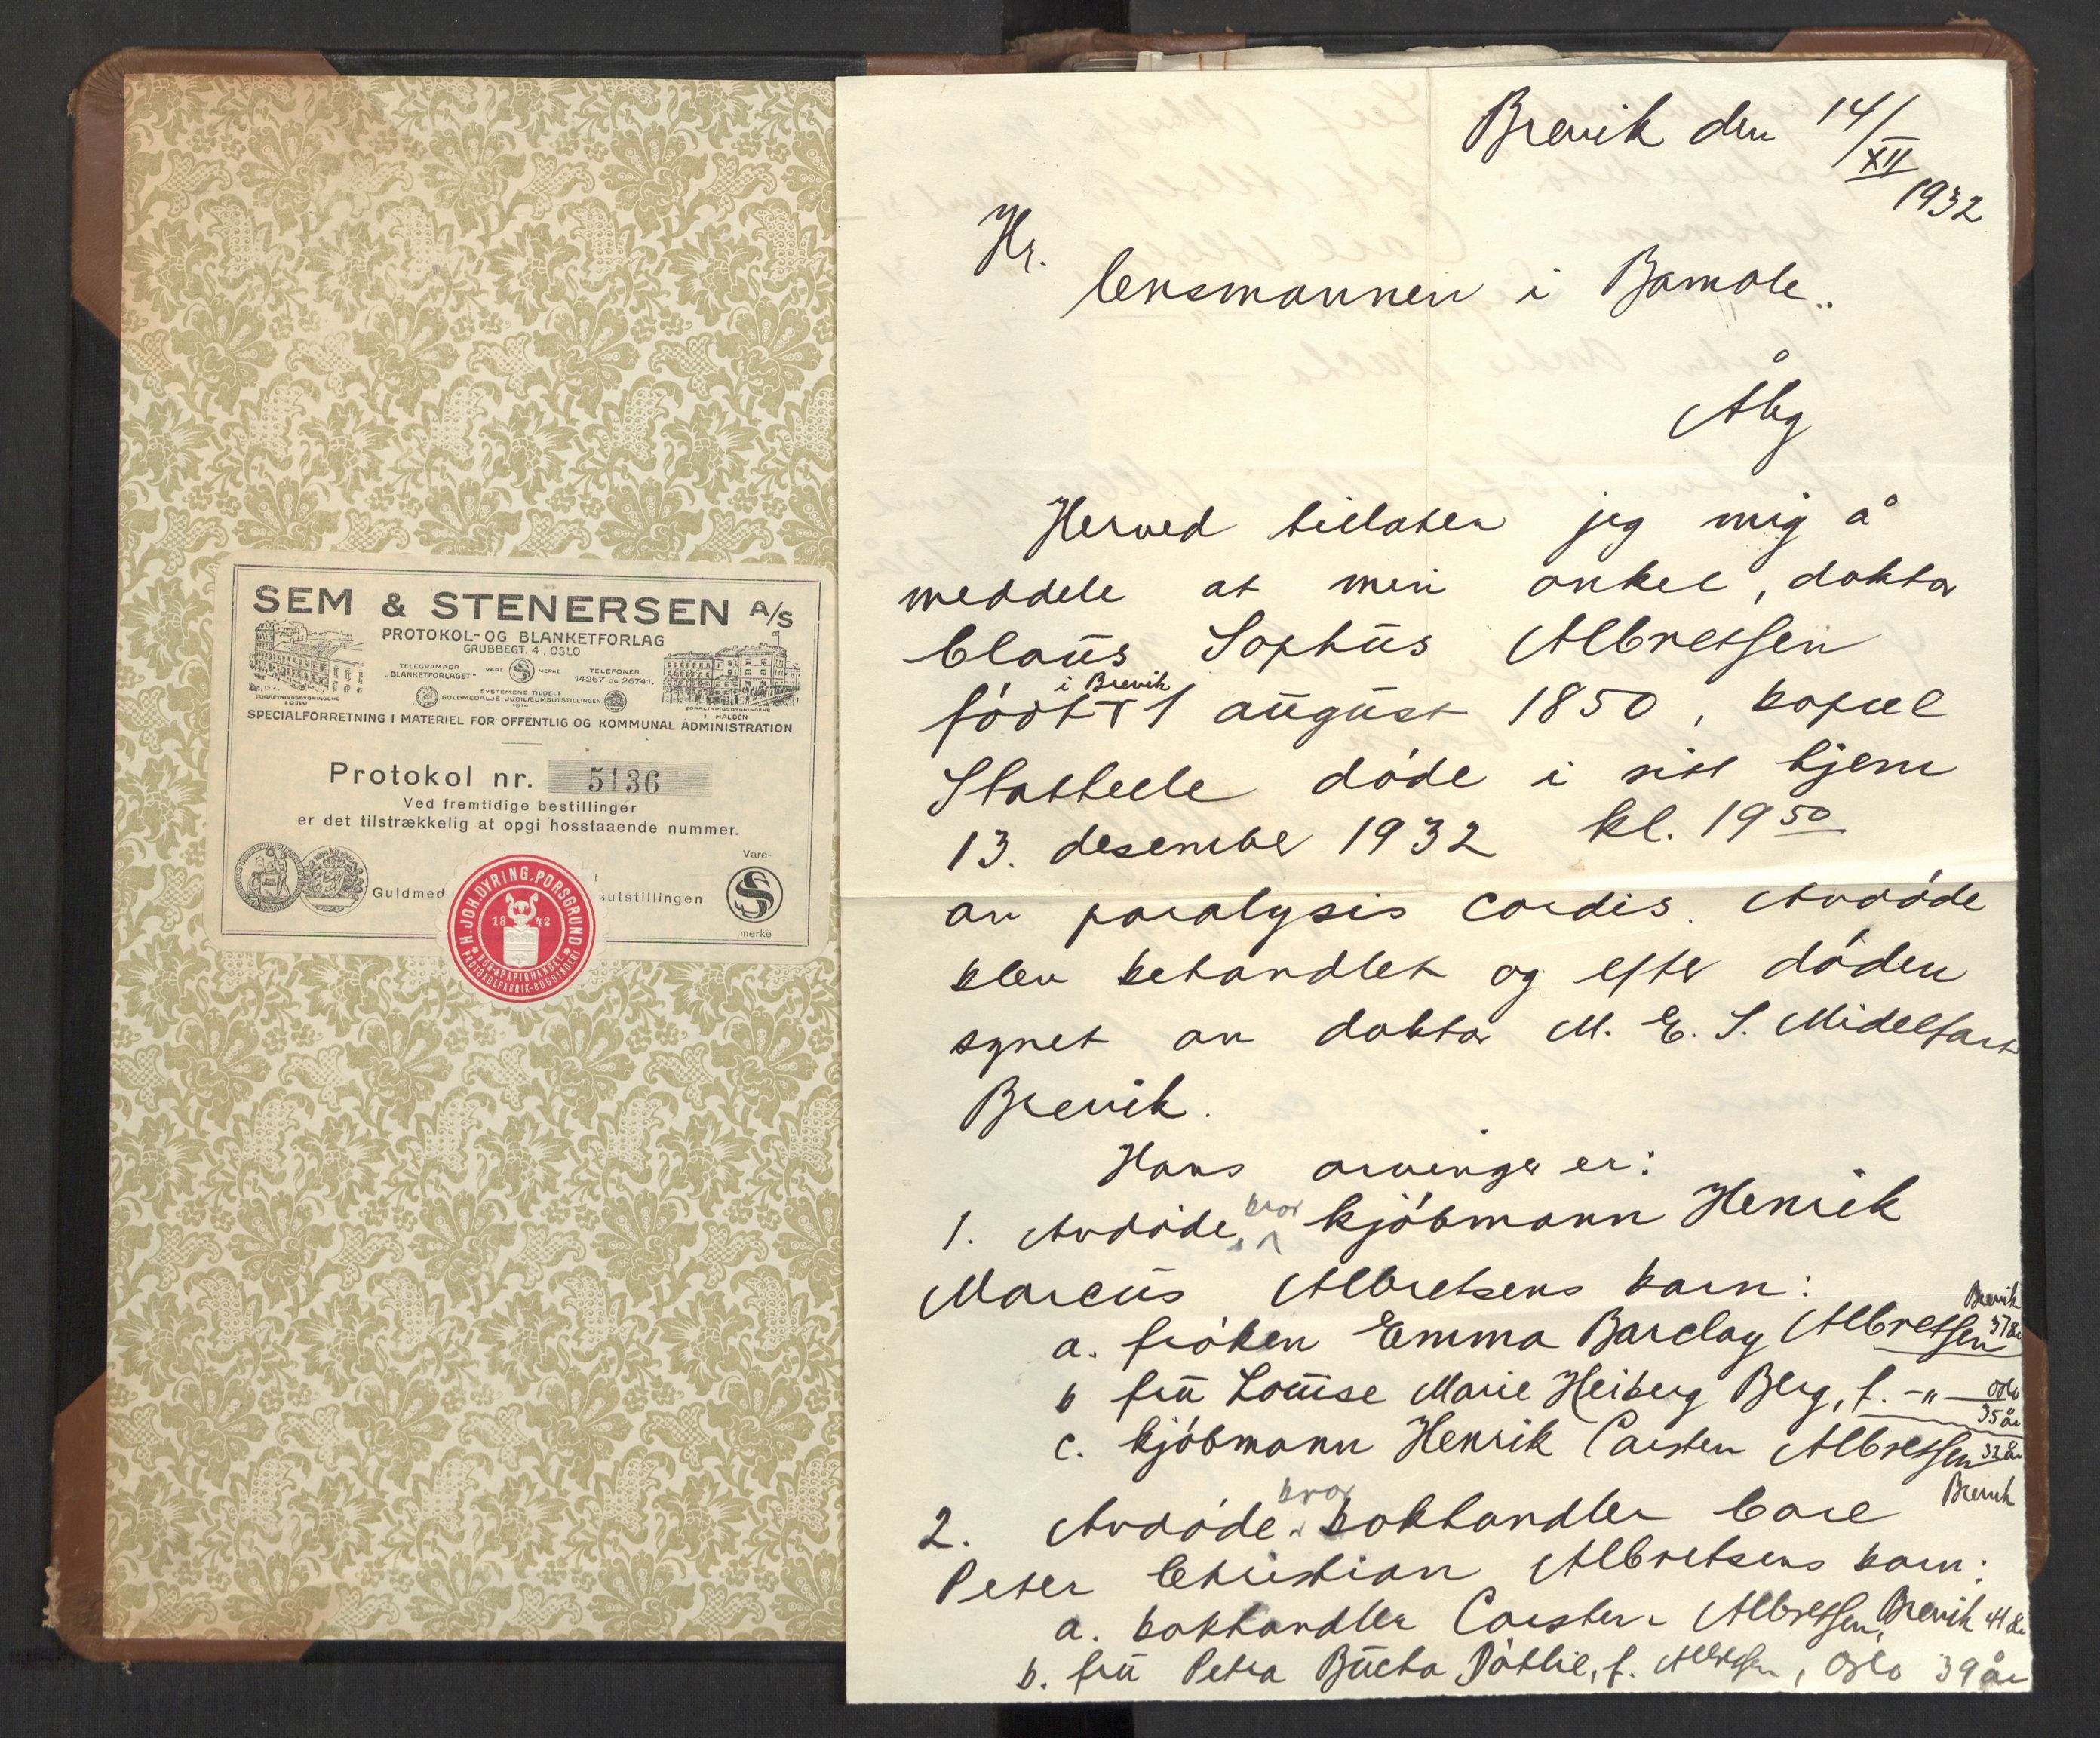 SEM & STENERSEN A/S
PROTOKOL- OG BLANKETFORLAG
GRUBBEGT. 4, OSLO
TELEGRAMADR
„BLANKETFORLAGET"
VARE S MERKE
TELEFONER
14267 OG 26741.
SYSTEMENE TILDELT
GULDMEDALJE JUBILÆUMSUTSTILLINGEN
1914
FORRETNINGSBYGNINGENE
I OSLO
FORRETNINGSBYGNINGENE
I HALDEN
SPECIALFORRETNING I MATERIEL FOR OFFENTLIG OG KOMMUNAL ADMINISTRATION
Protokol nr. 5136
Ved fremtidige bestillinger
er det tilstrækkelig at opgi hosstaaende nummer.
Guldmed
utstillingen
Vare-
S
merke
H. JOH. DYRING. PORSGRUND
1842
BOG & PAPIRHANDEL
PROTOKOLFABRIK-BOGBINDERI
Brevik den 14/XII
1932
Hr.
lensmannen i Bamble..
Åby
Herved tillater jeg mig å
meddele at min onkel, doktor
Claus Sophus Albretsen
i Brevik
født 1 august 1850, bopæl
Stathelle døde i sitt hjem
13. desember 1932 kl. 19 50
av paralysis cordis. Avdøde
blev behandlet og efter døden
synet av doktor M. E. S. Midelfart
Brevik.
Hans arvinger er:
1. Avdøde, bror kjøbmann Henrik
Marcus Albretsens barn:
a. frøken Emma Barclay Albretsen Brevik 37 år
b fru Louise Marie Heiberg Berg, f. -„- Oslo 35 år
c. kjøbmann Henrik Carsten Albretsen 32 år
Brevik
2. Avdøde bror bokhandler Carl
Peter Christian Albretsens barn:
a. bokhandler Carsten Albretsen, Brevik 41 år
b. fru Petra Bücha Døhlie, f. Albretsen, Oslo 39 år